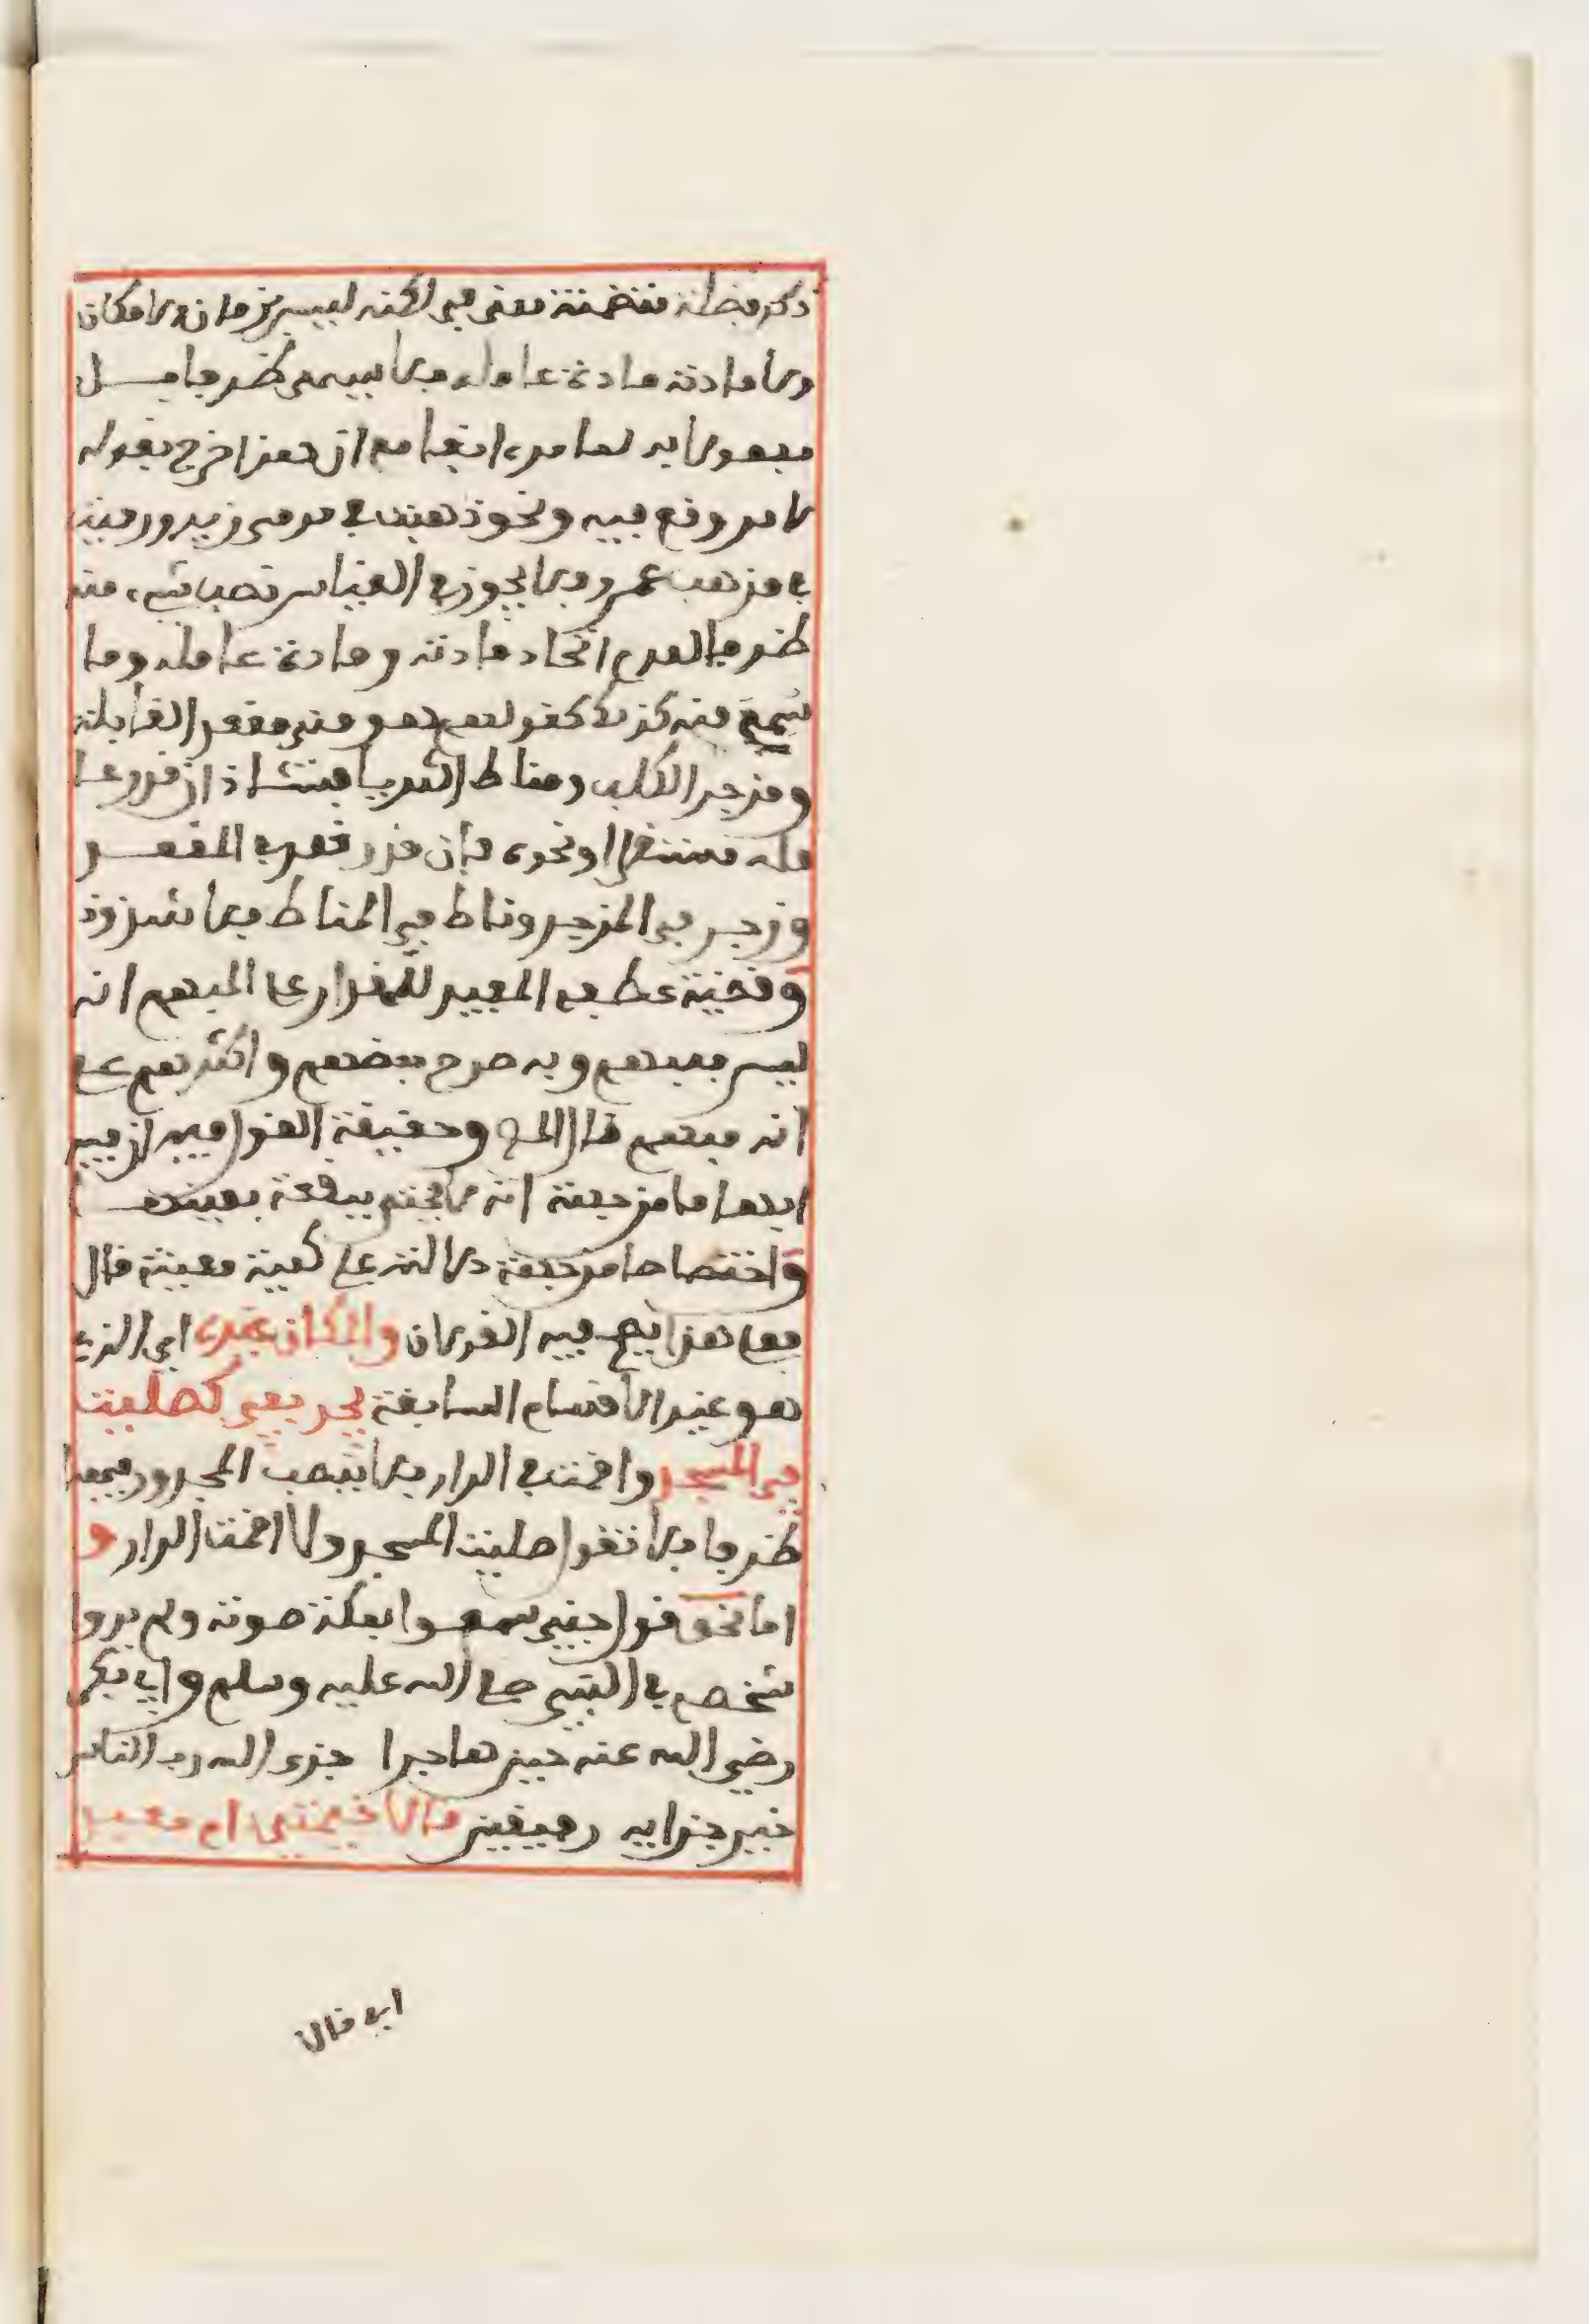 ذكر فضلة متضمنة معنى في لكنه ليس بزمان ولا مكان
ولا مادته مادة عامله فلا يسمى ظرفا بل
مفعولا به لما مر، ايضا مع ان هذا خرج بقوله
لامر وقع فيه ونحو ذهبت في مرمى زيد ورميت
في مذهب عمرو فلا يجوز في القياس نصب شيء منه
ظرفا لعدم اتحاد مادته ومادة عامله وما
سمع منه كذلك كقولهم هو مني مقعد القابلة
ومزجر الكلب ومناط الثريا فشاذ ان قدر عا
مله مستقرا ونحوه فان قدر قعد في المقعد
وزجر في المزجر وناط في المناط فلا شذوذ
وقضية عطفه المفيد للمقدار على المبهم انه
ليس بمبهم وبه صرح بعضهم واكثرهم على
انه مبهم قال وحقيقة القول فيه ان فيه
ابهاما من جهة انه لا يختص ببقعة بعينها
واختصاصا من جهة دلالته على كمية معينة قال
فعلى هذا يصح فيه القولان والمكان غيره اي الذي
هو غير الأقسام السابقة يجر بفي كصليت
في المسجد واقمت في الدار فلا ينصب المجرور فيهما
ظرفا فلا تقول صليت المسجد ولا اقمت الدار و
اما نحو قول جني سمعوا بمكة صوته ولم يروا
شخصه في النبي صلى الله عليه وسلم وابي بكر
رضي الله عنه حين هاجرا جزى الله رب الناس
خير جزايه رفيقين قالا خيمتي ام معبد
اي قالا